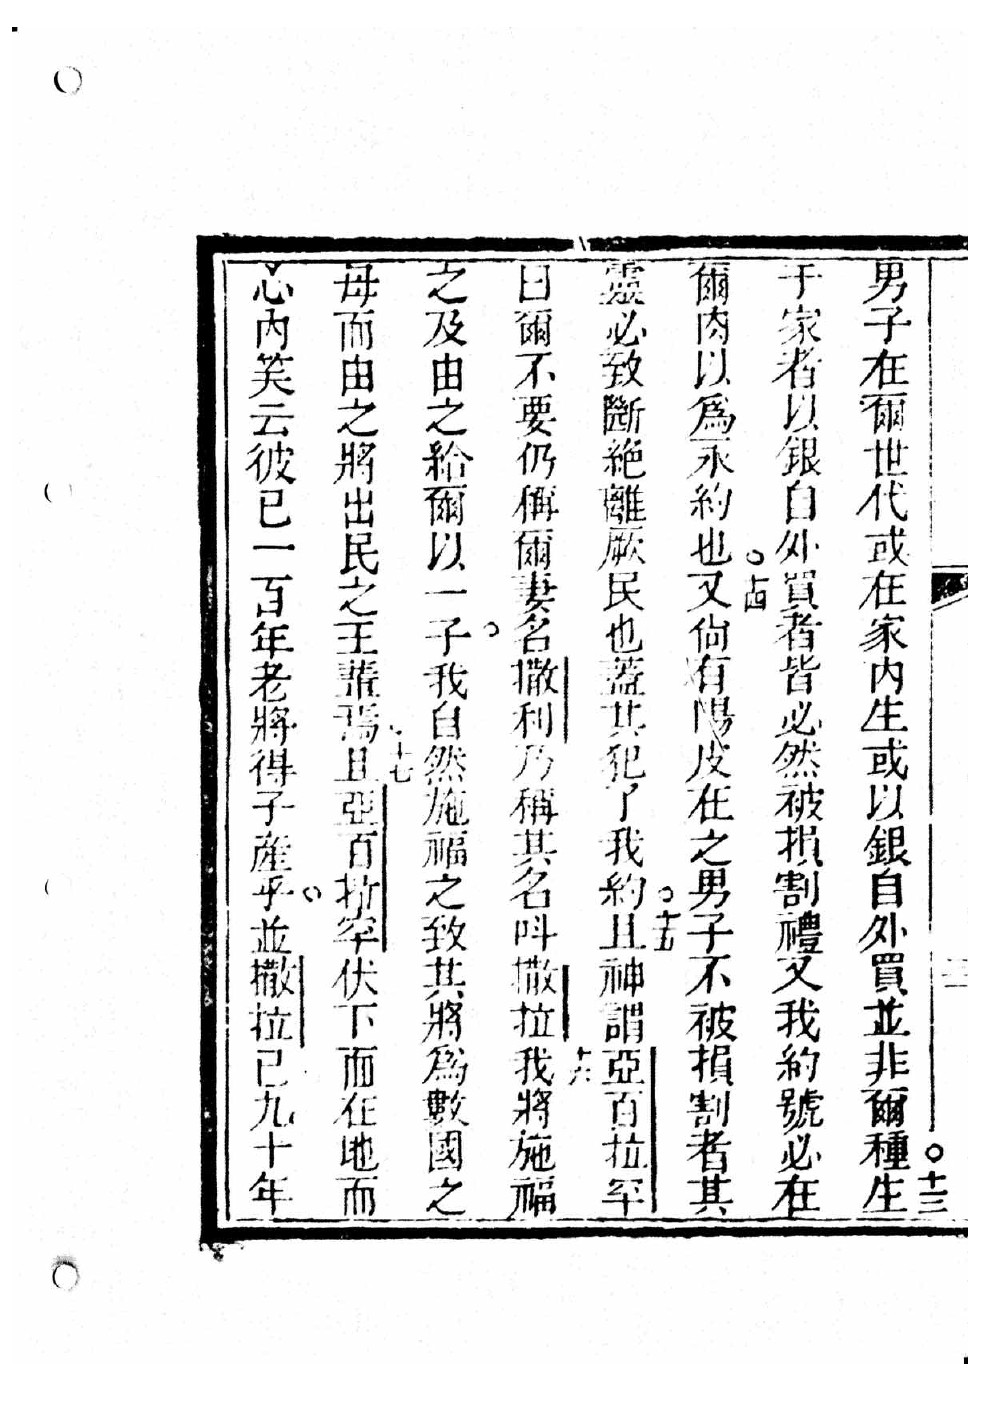 男子在爾世代或在家内生或以銀自外買並非爾種生○十三
于家者以銀自外買者皆必然被損割禮又我約號必在
爾肉以爲永約也○十四又倘有陽皮在之男子不被損割者其
靈必致斷絕離厥民也蓋其犯了我約○十五且神謂亞百拉罕
曰爾不要仍稱爾妻名撒利乃稱其名呌撒拉十六我將施福
之及由之給爾以一子○我自然施福之致其將爲數國之
母而由之將出民之王輩焉十七且亞百拉罕伏下面在地而
心内笑云彼已一百年老將得子產乎○並撒拉已九十年